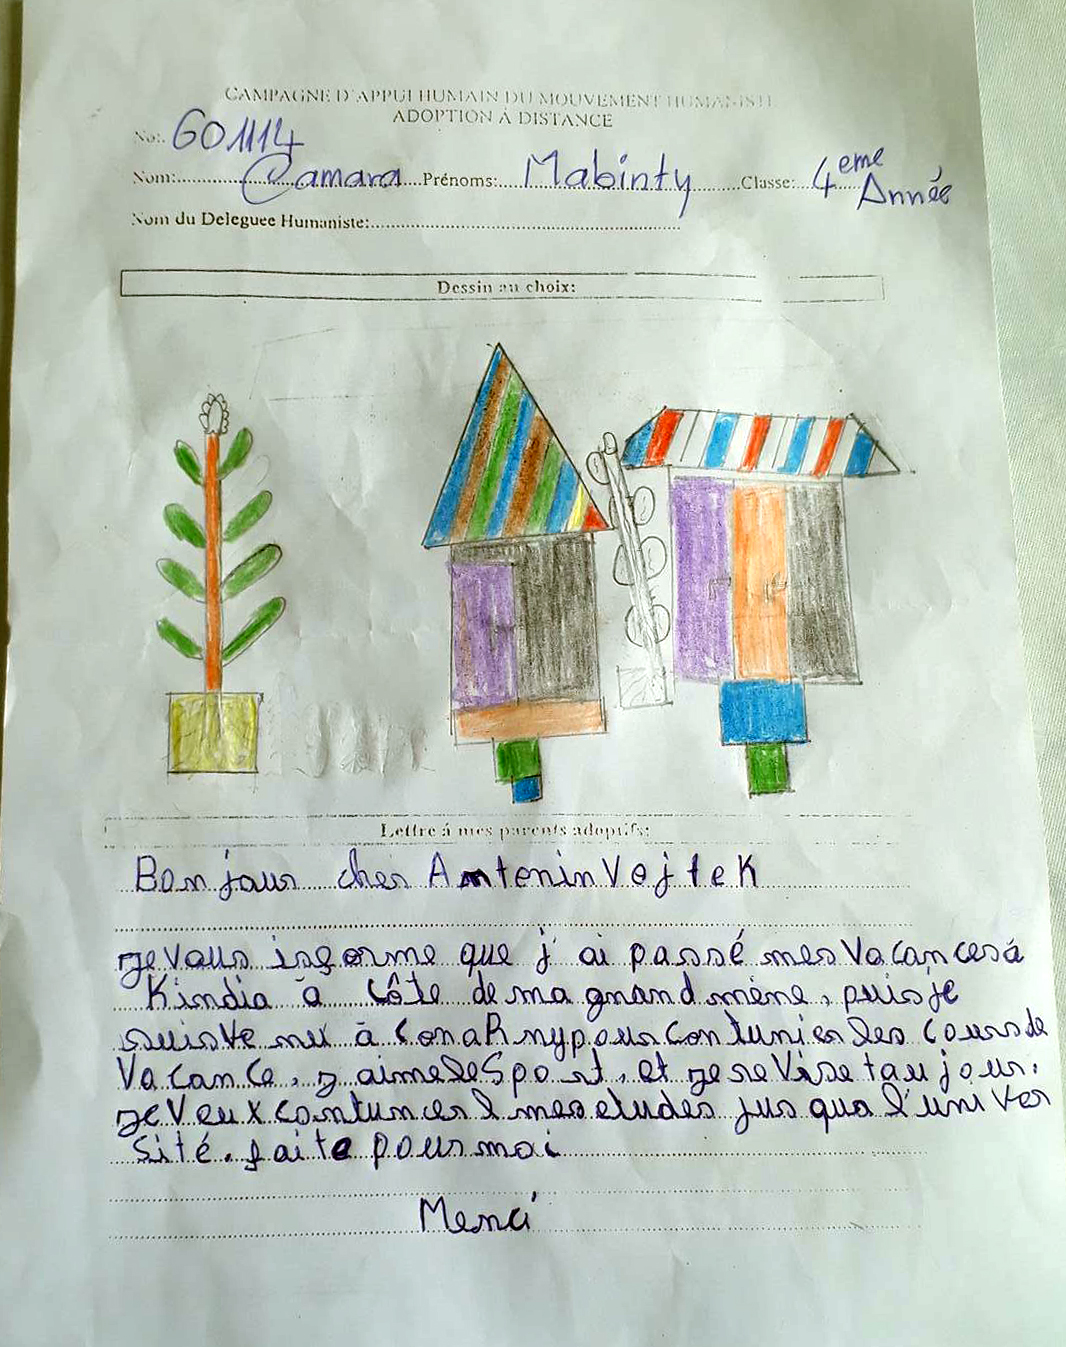 CAMPAGNE D'APPUI HUMAIN DU MOUVEMENT HUMANISTE
ADOPTION À DISTANCE
No: 601114
Nom: Camara Prénoms: Mabinty Classe: 4eme Année
Nom du Deleguee Humaniste:
Dessin au choix:
Lettre á mes parents adoptifs:
Bonjour cher Antonin Vojtek
je vous informe que j'ai passé mes vacances à
Kindia à côte de ma grand mère, puis je
suis venu à Conakry pour contunier les cours de
Vacance, j aime le Sport, et je revise toujour.
je veux contuncer l mes etudes jus qua l'univer
sité. faite pour moi
Merci